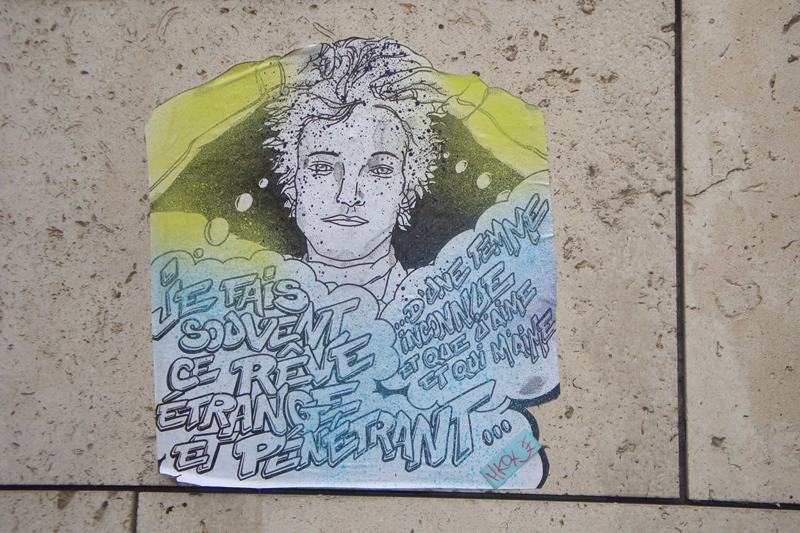 JE FAIS
SOUVENT
CE RÊVE
ÉTRANGE
ET PÉNÉTRANT...
...D'UNE FEMME
INCONNUE
ET QUE J'AIME
ET QUI M'AIME